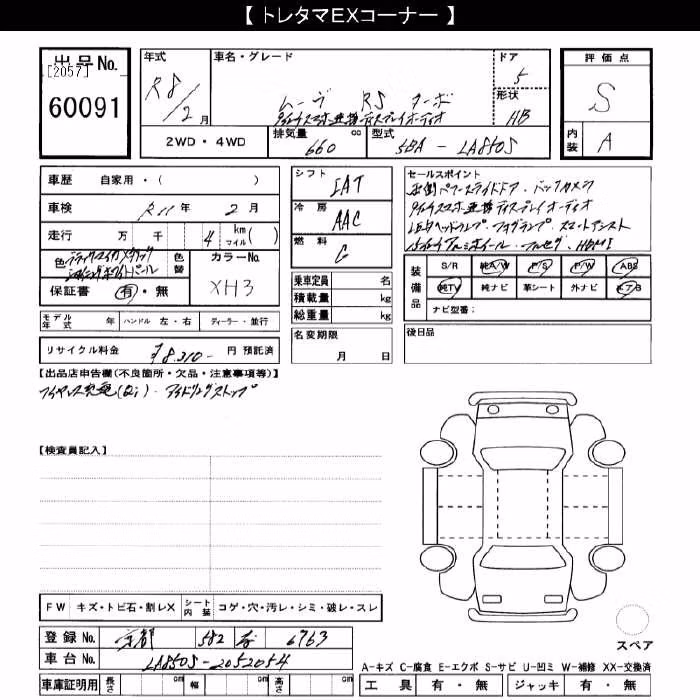 【 トレタマEXコーナー 】
出品No.
[2057]
60091
年式
R8/2月
車名・グレード
ムーヴ RS ターボ
9インチスマホ連携ディスプレイオーディオ
ドア
5
形状
HB
評価点
S
内装
A
2WD・4WD
排気量 660 cc
型式 5BA-LA850S
車歴 自家用・( )
車検 R11年 2月
走行 万 千 4 km マイル( )
色 ブラックマイカメタリック
シャイニングホワイトパール
色替
カラーNo.
XH3
保証書 有・無
モデル年式 年 ハンドル 左・右 ディーラー・並行
リサイクル料金 ¥8,310- 円 預託済
シフト
IAT
冷房
AAC
燃料
G
乗車定員 名
積載量 kg
総重量 kg
名変期限
月 日
セールスポイント
両側パワースライドドア・バックカメラ
9インチスマホ連携ディスプレイオーディオ
LEDヘッドランプ・フォグランプ・スマートアシスト
15インチアルミホイール・フルセグ・HDMI
装備品
S/R 純A/W P/S P/W ABS
純TV 純ナビ 革シート 外ナビ エアB
ナビ型番:
後日品
【出品店申告欄(不良箇所・欠品・注意事項等)】
ワイヤレス充電(Qi)・アイドリングストップ
【検査員記入】
FW キズ・トビ石・割レX シート内装 コゲ・穴・汚レ・シミ・破レ・スレ
登録No. 京都 582 6763
車台No. LA850S-2052054
車庫証明用 長さ cm 幅 cm 高さ cm
スペア
A-キズ C-腐食 E-エクボ S-サビ U-凹ミ W-補修 XX-交換済
工具 有・無 ジャッキ 有・無